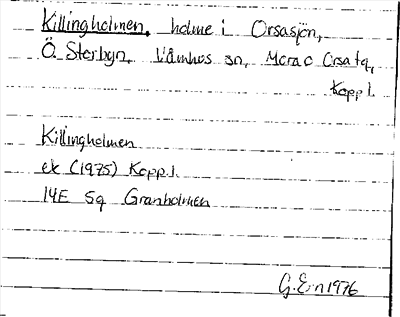 Killingholmen, holme i Orsasjön,
Ö. Storbyn, Våmhus sn, Mora o Orsa tg,
Kopp l.
Killingholmen
ek (1975) Kopp.l.
14E 5g Granholmen
G. E-n 1976